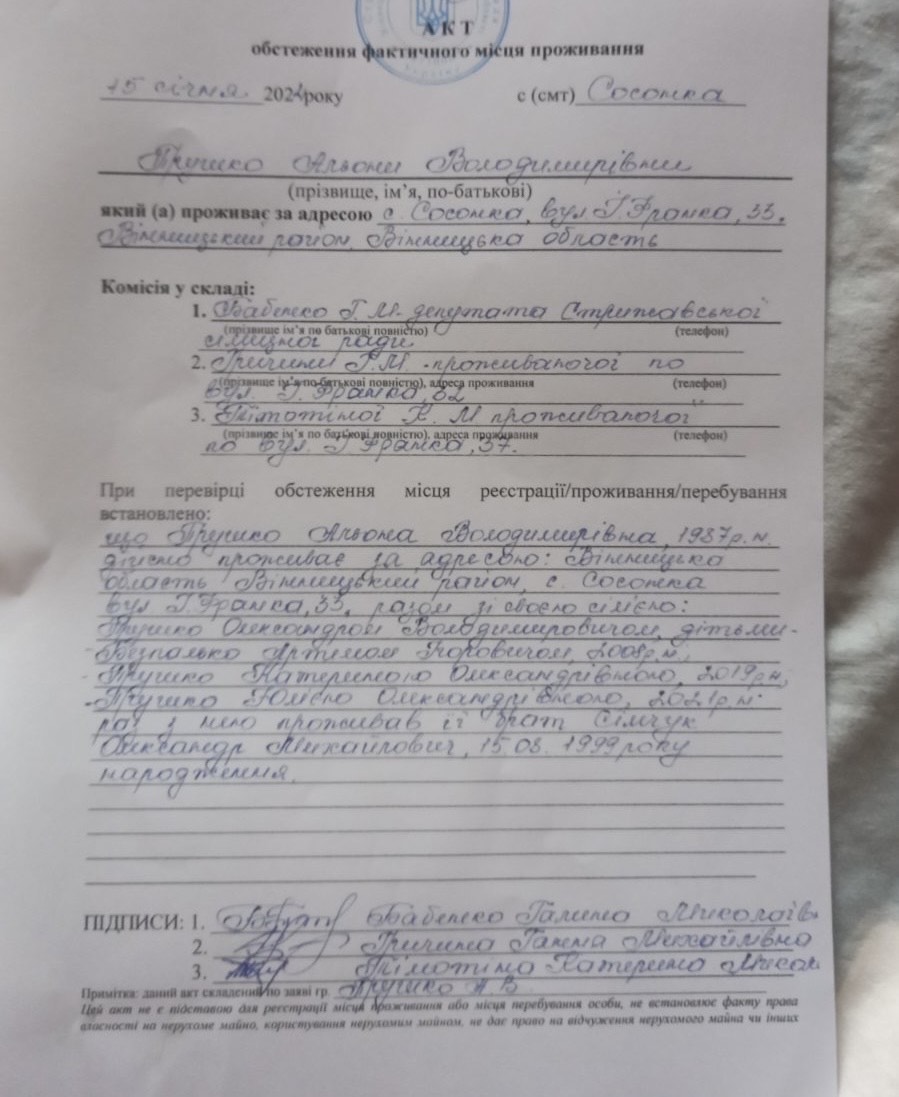 АКТ
обстеження фактичного місця проживання
15 січня 2024 року с (смт) Сосонка
Альони Володимирівни
(прізвище, ім’я, по-батькові)
який (а) проживає за адресою с. Сосонка, вул І.Франка, 33,
Вінницький район, Вінницька область
Комісія у складі:
1. Бабенко Г.М. депутата Стрижавської
(прізвище ім’я по батькові повністю) (телефон)
селищної ради
2. Гричини Г.М. - проживаючої по
(прізвище ім’я по-батькові повністю), адреса проживання (телефон)
вул. І. Франка, 32
3. К. М проживаючої
(прізвище ім’я по батькові повністю), адреса проживання (телефон)
по вул. І Франка, 37.
При перевірці обстеження місця реєстрації/проживання/перебування
встановлено:
що Альона Володимирівна, 1987р.н.
дійсно проживає за адресою: Вінницька
область Вінницький район, с. Сосонка
вул І.Франка, 33, разом зі своєю сімєю:
Олександром Володимировичом, дітьми -
- Артемом 2008р.н.,
- Катериною Олександрівною, 2019р.н,
- Юлією Олександрівною, 2021р.н.
з нею проживав її брат Сімчук
Олександр Михайлович, 15.08. 1999 року
народження.
ПІДПИСИ: 1. Бабенко Галина Миколаїв
2. Гричина Ганна Михайлівна
3. Катерина Микол
Примітка: даний акт складений по заяві гр. А В
Цей акт не є підставою для реєстрації місця проживання або місця перебування особи, не встановлює факту права
власності на нерухоме майно, користування нерухомим майном, не дає право на відчуження нерухомого майна чи інших